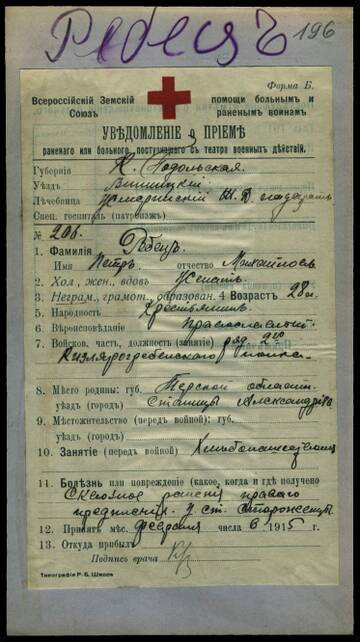 Ребецъ
196
Форма Б.
Всероссійскій Земскій помощи больнымъ и
Союзъ раненымъ воинамъ.
УВѢДОМЛЕНІЕ о ПРІЕМѢ
раненаго или больного, поступившаго съ театра военныхъ дѣйствій.
Губернія К. Подольская.
Уѣздъ Винницкій
Лѣчебница Жмеринскій
Спец. госпиталь (патронажъ)
№ 206.
1. Фамилія Ребецъ.
Имя Петръ отчество Михайловъ
2. Хол., жен., вдовъ Женатъ
3. Неграм., грамот., образован. 4 Возрастъ 28 л.
5. Народность Крестьянинъ
6. Вѣроисповѣданіе Православный.
7. Войсков. часть, должность (занятіе) ряд. 2го
Кизляро-гребенского полка.
8. Мѣсто родины: губ. Терской области
уѣздъ (городъ) Станицы
9. Мѣстожительство (передъ войной): губ.
уѣздъ (городъ)
10. Занятіе (передъ войной) Хлѣбопашество
11. Болѣзнь или поврежденіе (какое, когда и гдѣ получено
Сквозное раненіе праваго
предплечія. у ст.
12. Принятъ мѣс. февраля числа 6 1915 г.
13. Откуда прибылъ
Подпись врача
Типографія Р.-Б. Шписъ